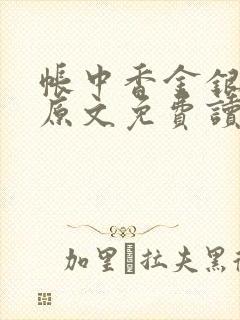 帳中香金銀
原文免費讀
加里 拉夫黑